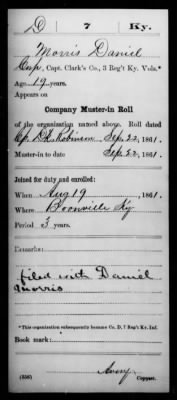 D 7 Ky.
Morris Daniel
Corp, Capt. Clark's Co., 3 Reg't Ky. Vols.*
Age 19 years.
Appears on
Company Muster-in Roll
of the organization named above. Roll dated
Cp. Dk Robinson Sep. 22, 1861.
Muster-in to date Sep. 22, 1861.
Joined for duty and enrolled:
When Aug 19, 1861.
Where Boonville Ky
Period 3 years.
Remarks:
filed with Daniel
Morris
*This organization subsequently became Co. D, 7 Reg't Ky. Inf.
Book mark:
(356) Avery
Copyist.